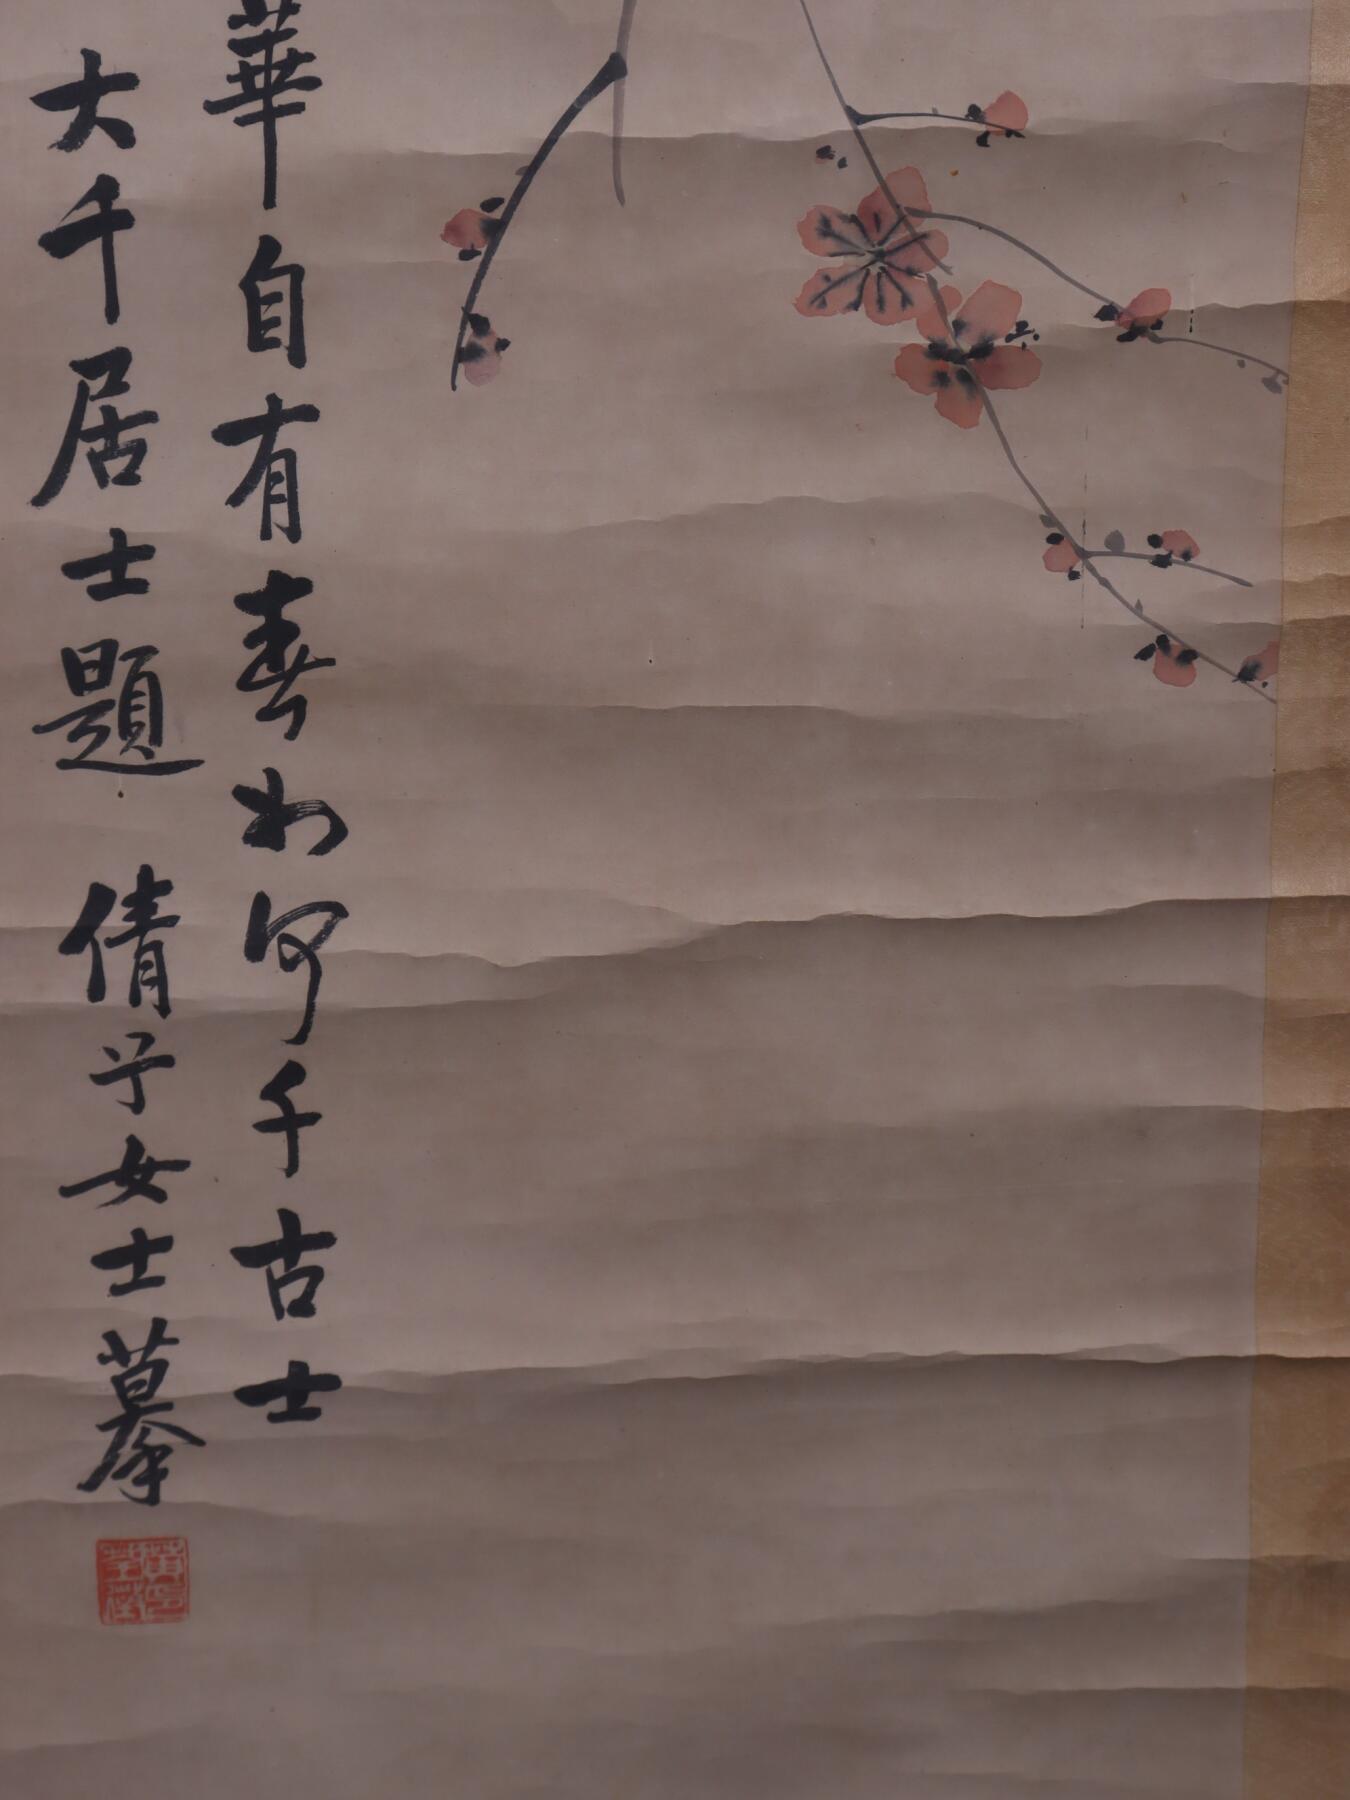 華自有春如何千古士
大千居士題 倩兮女士摹